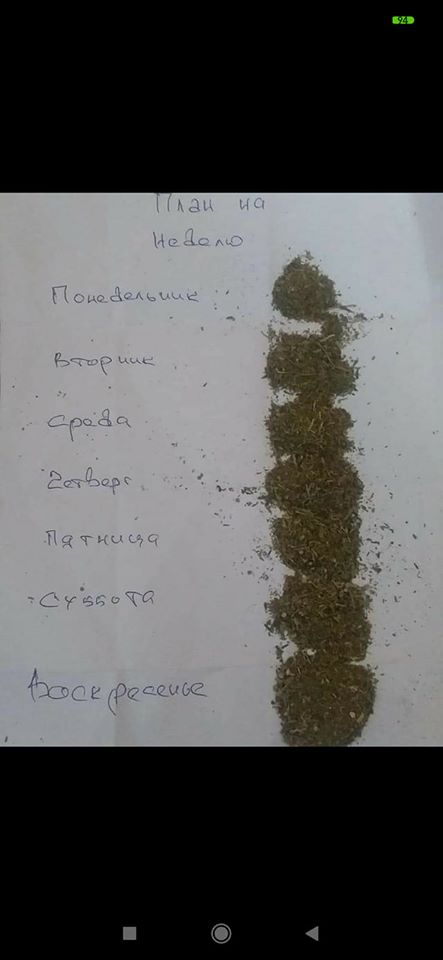 94
План на
Неделю
Понедельник
Вторник
Среда
Четверг
Пятница
Суббота
Воскресенье